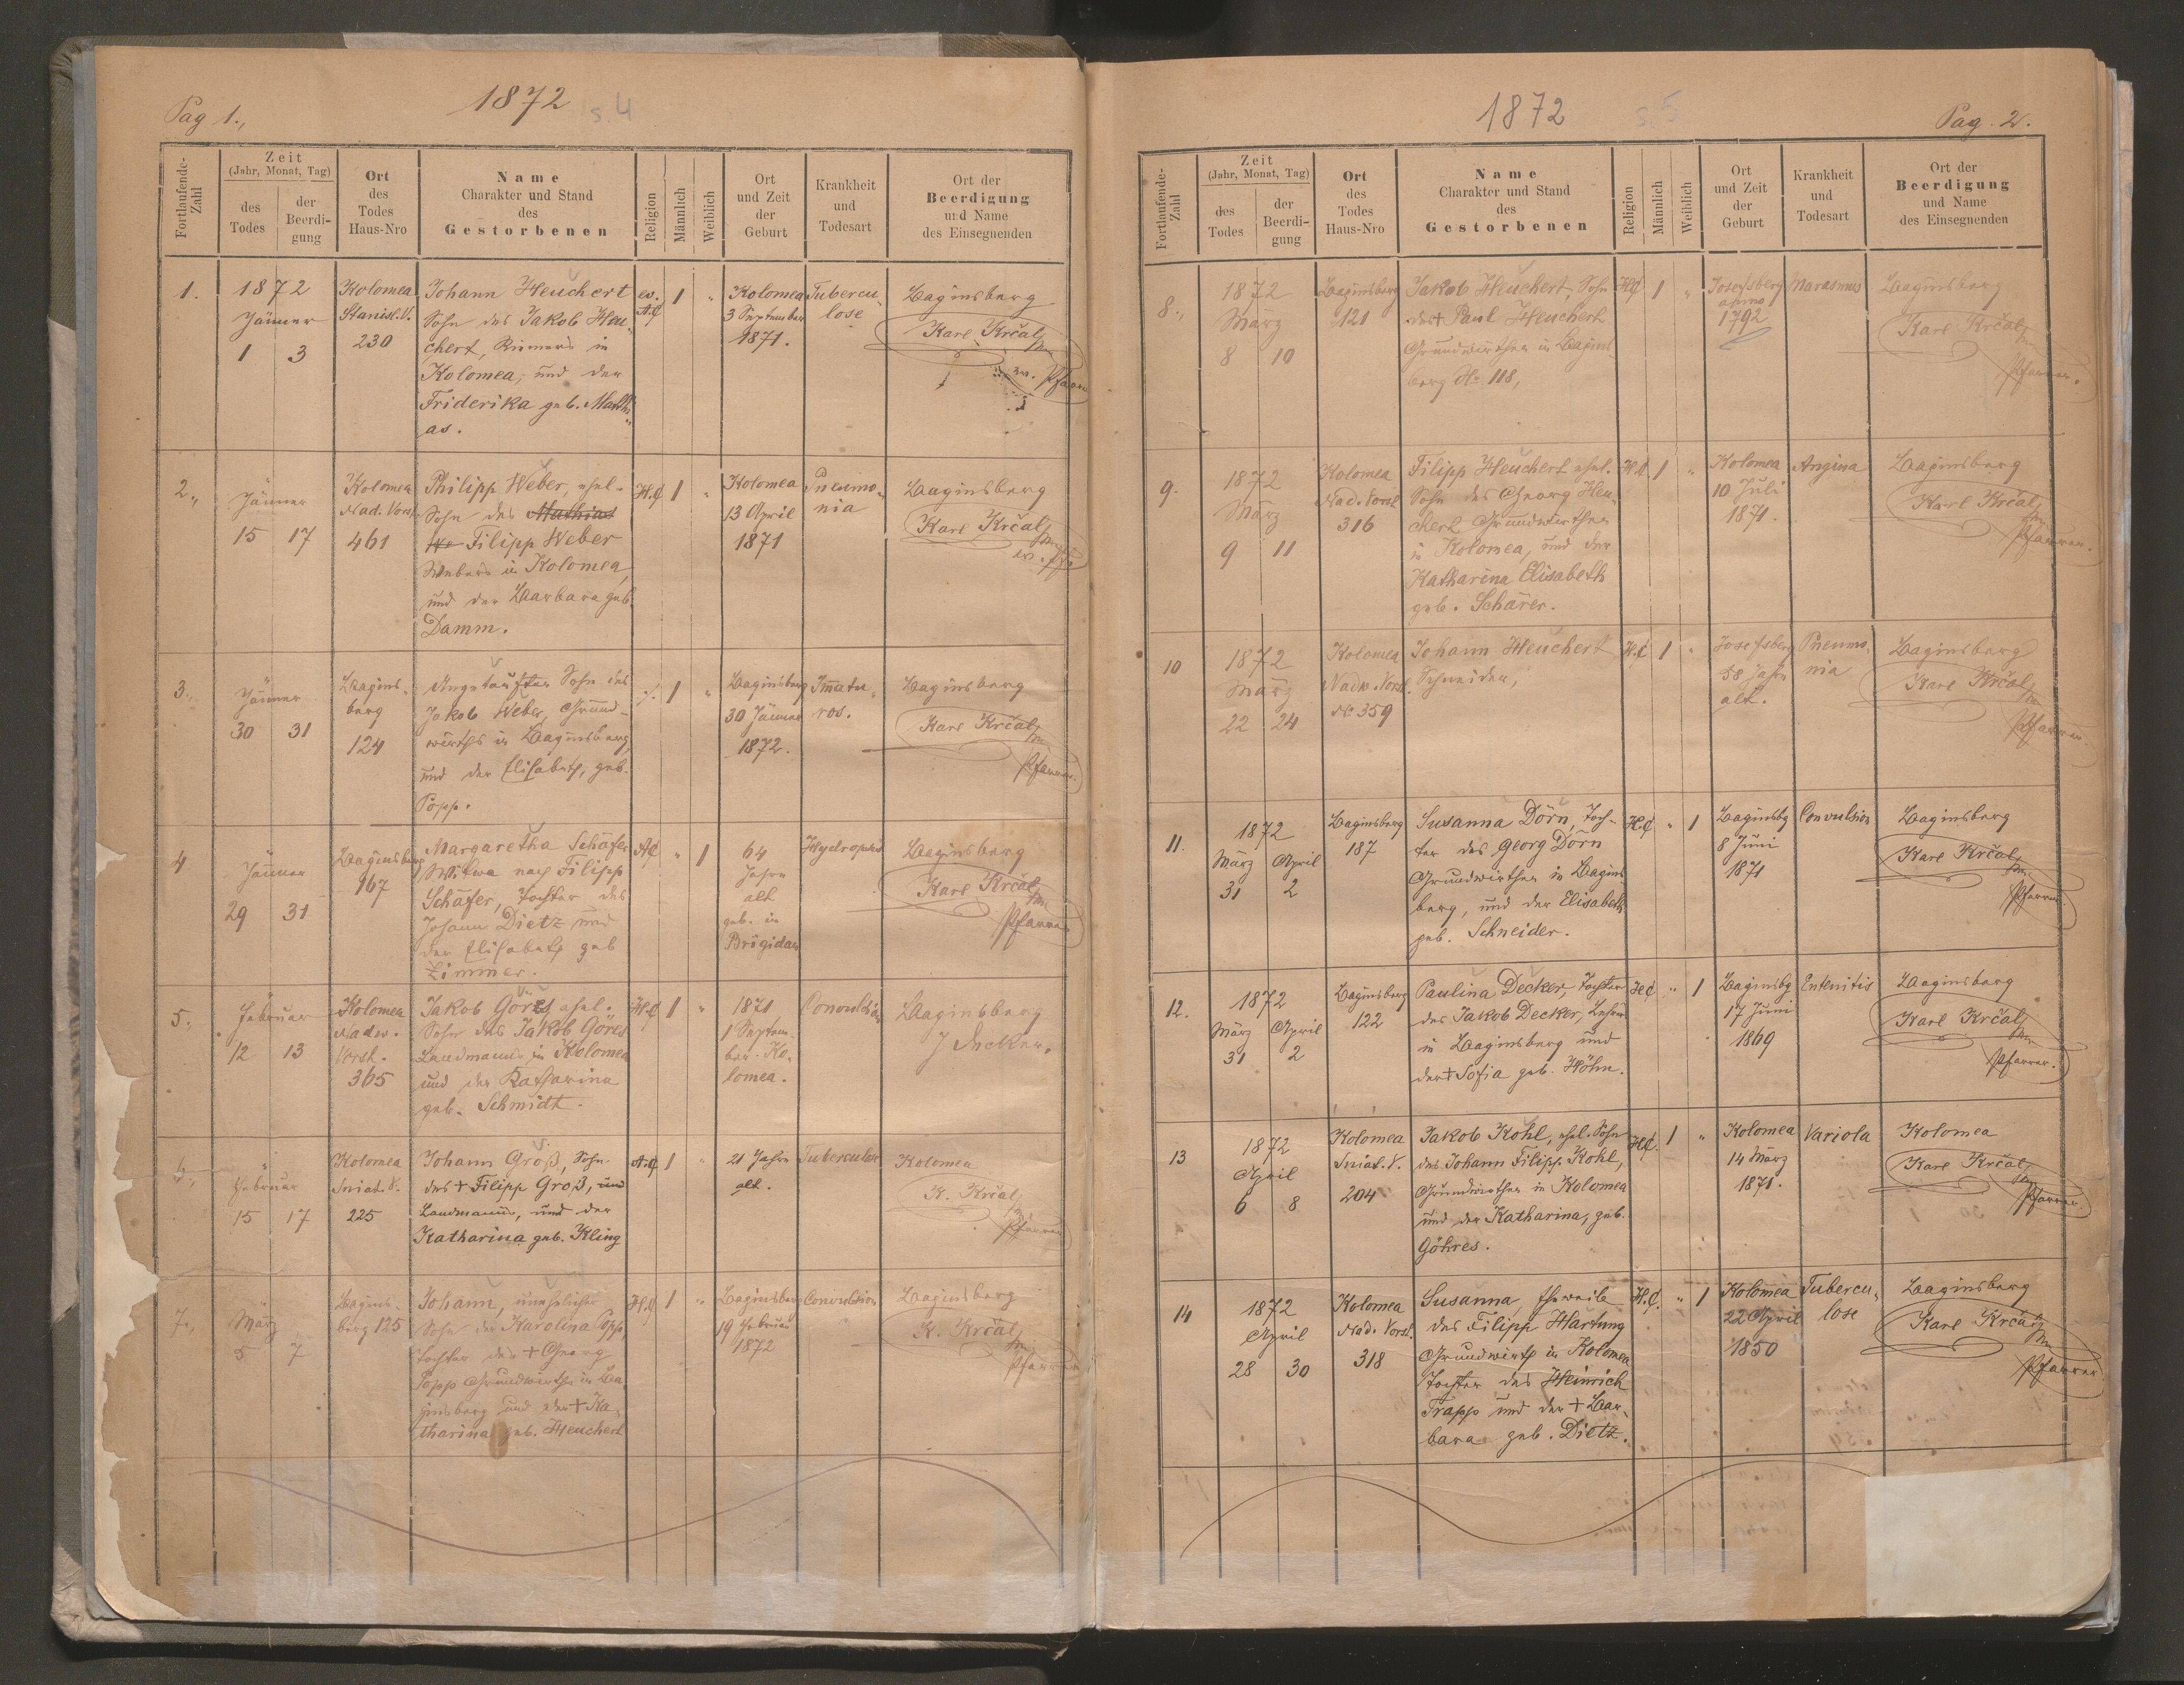 Pag 1.,
1872
s. 4
Fortlaufende-Zahl
Zeit
(Jahr, Monat, Tag)
des Todes
der Beerdi-gung
Ort
des
Todes
Haus-Nro
Name
Charakter und Stand
des
Gestorbenen
Religion
Männlich
Weiblich
Ort
und Zeit
der
Geburt
Krankheit
und
Todesart
Ort der
Beerdigung
und Name
des Einsegnenden
1.
1872
Jänner
1 3
Kolomea
Stanisl. V.
230
Johann Heuchert
Sohn des Jakob Heu-
chert, Riemers in
Kolomea, und der
Friderika geb. Mathi-
as.
ev.
A.C
1 "
Kolomea
3 September
1871.
Tubercu-
lose
Baginsberg
Karl Krčal
ev. Pfarrer
2.,
Jänner
15 17
Kolomea
Nad. Vorst.
461
Philipp Weber, ehel.
Sohn des Mathias
We Filipp Weber
Webers in Kolomea,
und der Barbara geb.
Damm.
H.C
1 "
Kolomea
13 April
1871
Pneumo-
nia
Baginsberg
Karl Krčal
ev. Pfr
3.,
Jänner
30 31
Bagins-
berg
124
Ungetaufter Sohn des
Jakob Weber, Grund-
wirths in Baginsberg,
und der Elisabeth, geb.
Popp.
1 "
Baginsberg
30 Jänner
1872.
Immatu-
ros.
Baginsberg
Karl Krčal
Pfarrer.
4
Jänner
29 31
Baginsberg
167
Margaretha Schäfer
Witwe nach Filipp
Schäfer, Tochter des
Johann Dietz und
der Elisabeth geb
Zimmer.
A.C
" 1
64
Jahre
alt
geb. in
Brigidau
Hydrophis
Baginsberg
Karl Krčal
Pfarrer
5.,
Februar
12 13
Kolomea
Nadw.
Vorst.
365
Jakob Göres ehel.
Sohn des Jakob Göres
Landmanns in Kolomea
und der Katharina
geb. Schmidt.
H.C
1 "
1871
1 Septem-
ber. Ko-
lomea.
Convulsion
Baginsberg
J Decker.
6.,
Februar
15 17
Kolomea
Sniat. V.
225
Johann Groß, Sohn
des + Filipp Groß, und
Landmanns, und der
Katharina geb. Kling
A.C
1 "
21 Jahre
alt.
Tuberculose
Kolomea
K. Krčal
Pfarrer
7.,
März
5 7
Bagins-
berg 125
Johann, unehelicher
Sohn der Karolina Popp,
Tochter des + Georg
Popp Grundwirths in Ba-
ginsberg und der + Ka-
tharina geb. Heuchert
H.C
1 "
Baginsberg
19 Februar
1872
Convulsion
Baginsberg
K. Krčal
Pfarrer
1872
s. 5
Pag. 2.
Fortlaufende-Zahl
Zeit
(Jahr, Monat, Tag)
des Todes
der Beerdi-gung
Ort
des
Todes
Haus-Nro
Name
Charakter und Stand
des
Gestorbenen
Religion
Männlich
Weiblich
Ort
und Zeit
der
Geburt
Krankheit
und
Todesart
Ort der
Beerdigung
und Name
des Einsegnenden
8.,
1872
März
8 10
Baginsberg
121
Jakob Heuchert, Sohn
des + Paul Heuchert
Grundwirthes in Bagins-
berg No 118,
H.C
1 "
Josefsberg
anno
1792
Marasmus
Baginsberg
Karl Krčal
Pfarrer.
9.
1872
März
9 11
Kolomea
Nad. Vorst
316
Filipp Heuchert ehel.
Sohn des Georg Heu-
chert Grundwirthes
in Kolomea, und der
Katharina Elisabeth
geb. Schärer.
H.C
1 "
Kolomea
10 Juli
1871.
Angina
Baginsberg
Karl Krčal
Pfarrer.
10
1872
März
22 24
Kolomea
Nadw. Vorst.
No 359
Johann Heuchert
Schneider,
H.C
1 "
Josefsberg
58 Jahre
alt.
Pneumo-
nia
Baginsberg
Karl Krčal
Pfarrer.
11.
1872
März April
31 2
Baginsberg
187
Susanna Dörn, Toch-
ter des Georg Dörn
Grundwirthes in Bagins-
berg, und der Elisabeth
geb. Schneider.
H.C
" 1
Baginsbg
8 Juni
1871
Convulsion
Baginsberg
Karl Krčal
Pfarrer
12.
1872
März April
31 2
Baginsberg
122
Paulina Decker, Tochter
des Jakob Decker, Lehrer
in Baginsberg und
der + Sofia geb. Höhn.
H.C
" 1
Baginsbg
17 Juni
1869
Enteritis
Baginsberg
Karl Krčal
Pfarrer.
13
1872
April
6 8
Kolomea
Sniat. V.
204
Jakob Kohl, ehel. Sohn
des Johann Filipp Kohl,
Grundwirthes in Kolomea
und der Katharina, geb.
Göhres.
H.C.
1 "
Kolomea
14 März
1871.
Variola
Kolomea
Karl Krčal
Pfarrer.
14
1872
April
28 30
Kolomea
Nad. Vorst.
318
Susanna, Eheweib
des Filipp Hartung
Grundwirth in Kolomea
Tochter des Heinrich
Trapp und der + Bar-
bara geb. Dietz.
H.C.
" 1
Kolomea
22 April
1850
Tubercu-
lose
Baginsberg
Karl Krčal
Pfarrer